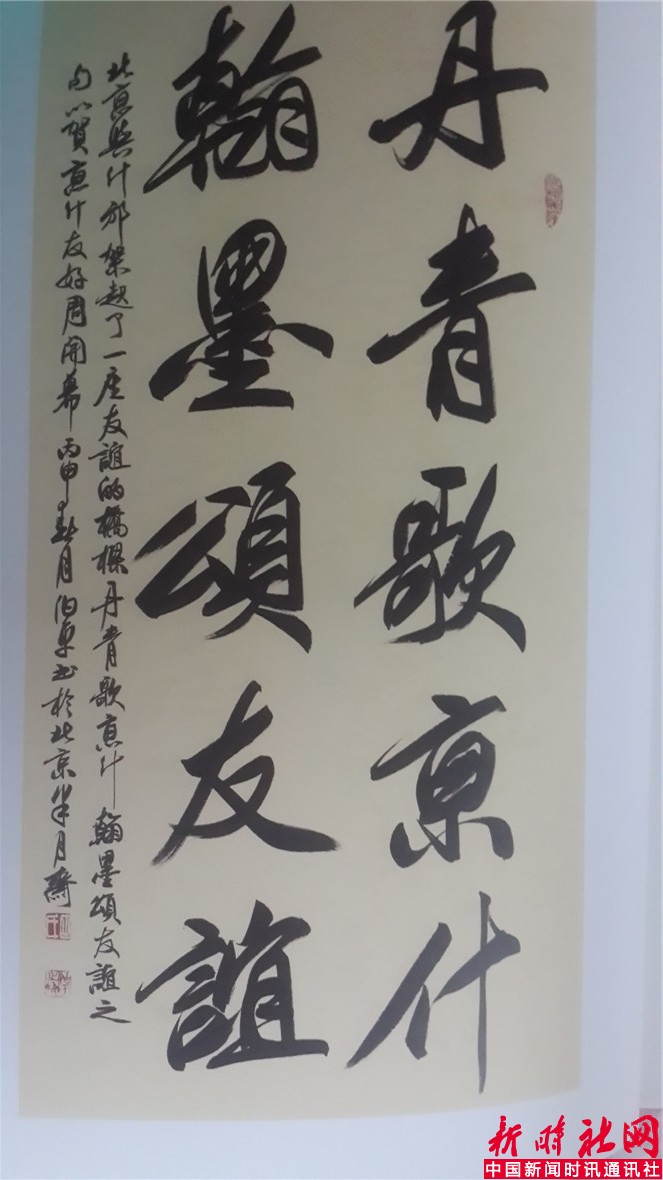 丹青歌京什
翰墨頌友誼
北京與什邡架起了一座友誼的橋樑丹青歌京什翰墨頌友誼之
句以賀京什友好周開幕丙申秋月伯卓書於北京半月齋
新时社网
中国新闻时讯通讯社